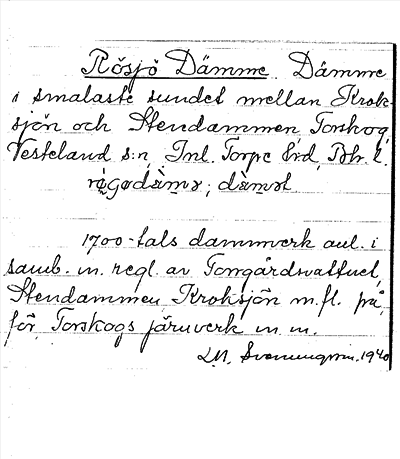 Rösjö Dämme Dämme
i smalaste sundet mellan Krok-
sjön och Stendammen, Torskog,
Vesteland s:n, Inl. Torpe Hrd, Boh. l.
dämət
1700-tals dammverk anl. i
samb. m. regl. av Tomgårdsvattnet,
Stendammen, Kroksjön m.fl. på,
för Torskogs järnverk m. m.
1940